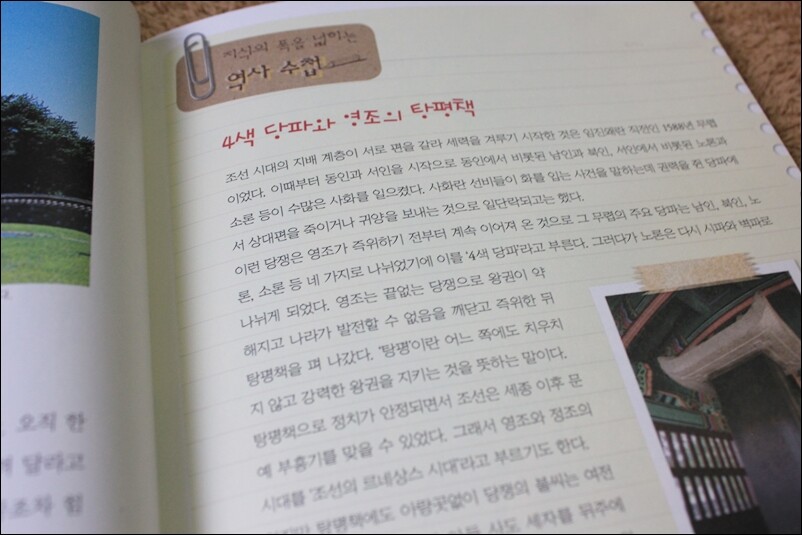 지식의 폭을 넓히는
역사 수첩
4색 당파와 영조의 탕평책
조선 시대의 지배 계층이 서로 편을 갈라 세력을 겨루기 시작한 것은 임진왜란 직전인 1588년 무렵
이었다. 이때부터 동인과 서인을 시작으로 동인에서 비롯된 남인과 북인, 서인에서 비롯된 노론과
소론 등이 수많은 사화를 일으켰다. 사화란 선비들이 화를 입는 사건을 말하는데 권력을 쥔 당파에
서 상대편을 죽이거나 귀양을 보내는 것으로 일단락되고는 했다.
이런 당쟁은 영조가 즉위하기 전부터 계속 이어져 온 것으로 그 무렵의 주요 당파는 남인, 북인, 노
론, 소론 등 네 가지로 나뉘었기에 이를 '4색 당파'라고 부른다. 그러다가 노론은 다시 시파와 벽파로
나뉘게 되었다. 영조는 끝없는 당쟁으로 왕권이 약
해지고 나라가 발전할 수 없음을 깨닫고 즉위한 뒤
탕평책을 펴 나갔다. '탕평'이란 어느 쪽에도 치우치
지 않고 강력한 왕권을 지키는 것을 뜻하는 말이다.
탕평책으로 정치가 안정되면서 조선은 세종 이후 문
예 부흥기를 맞을 수 있었다. 그래서 영조와 정조의
시대를 '조선의 르네상스 시대'라고 부르기도 한다.
탕평책에도 아랑곳없이 당쟁의 불씨는 여전
사도 세자를 뒤주에
오직 한
달라고
힘